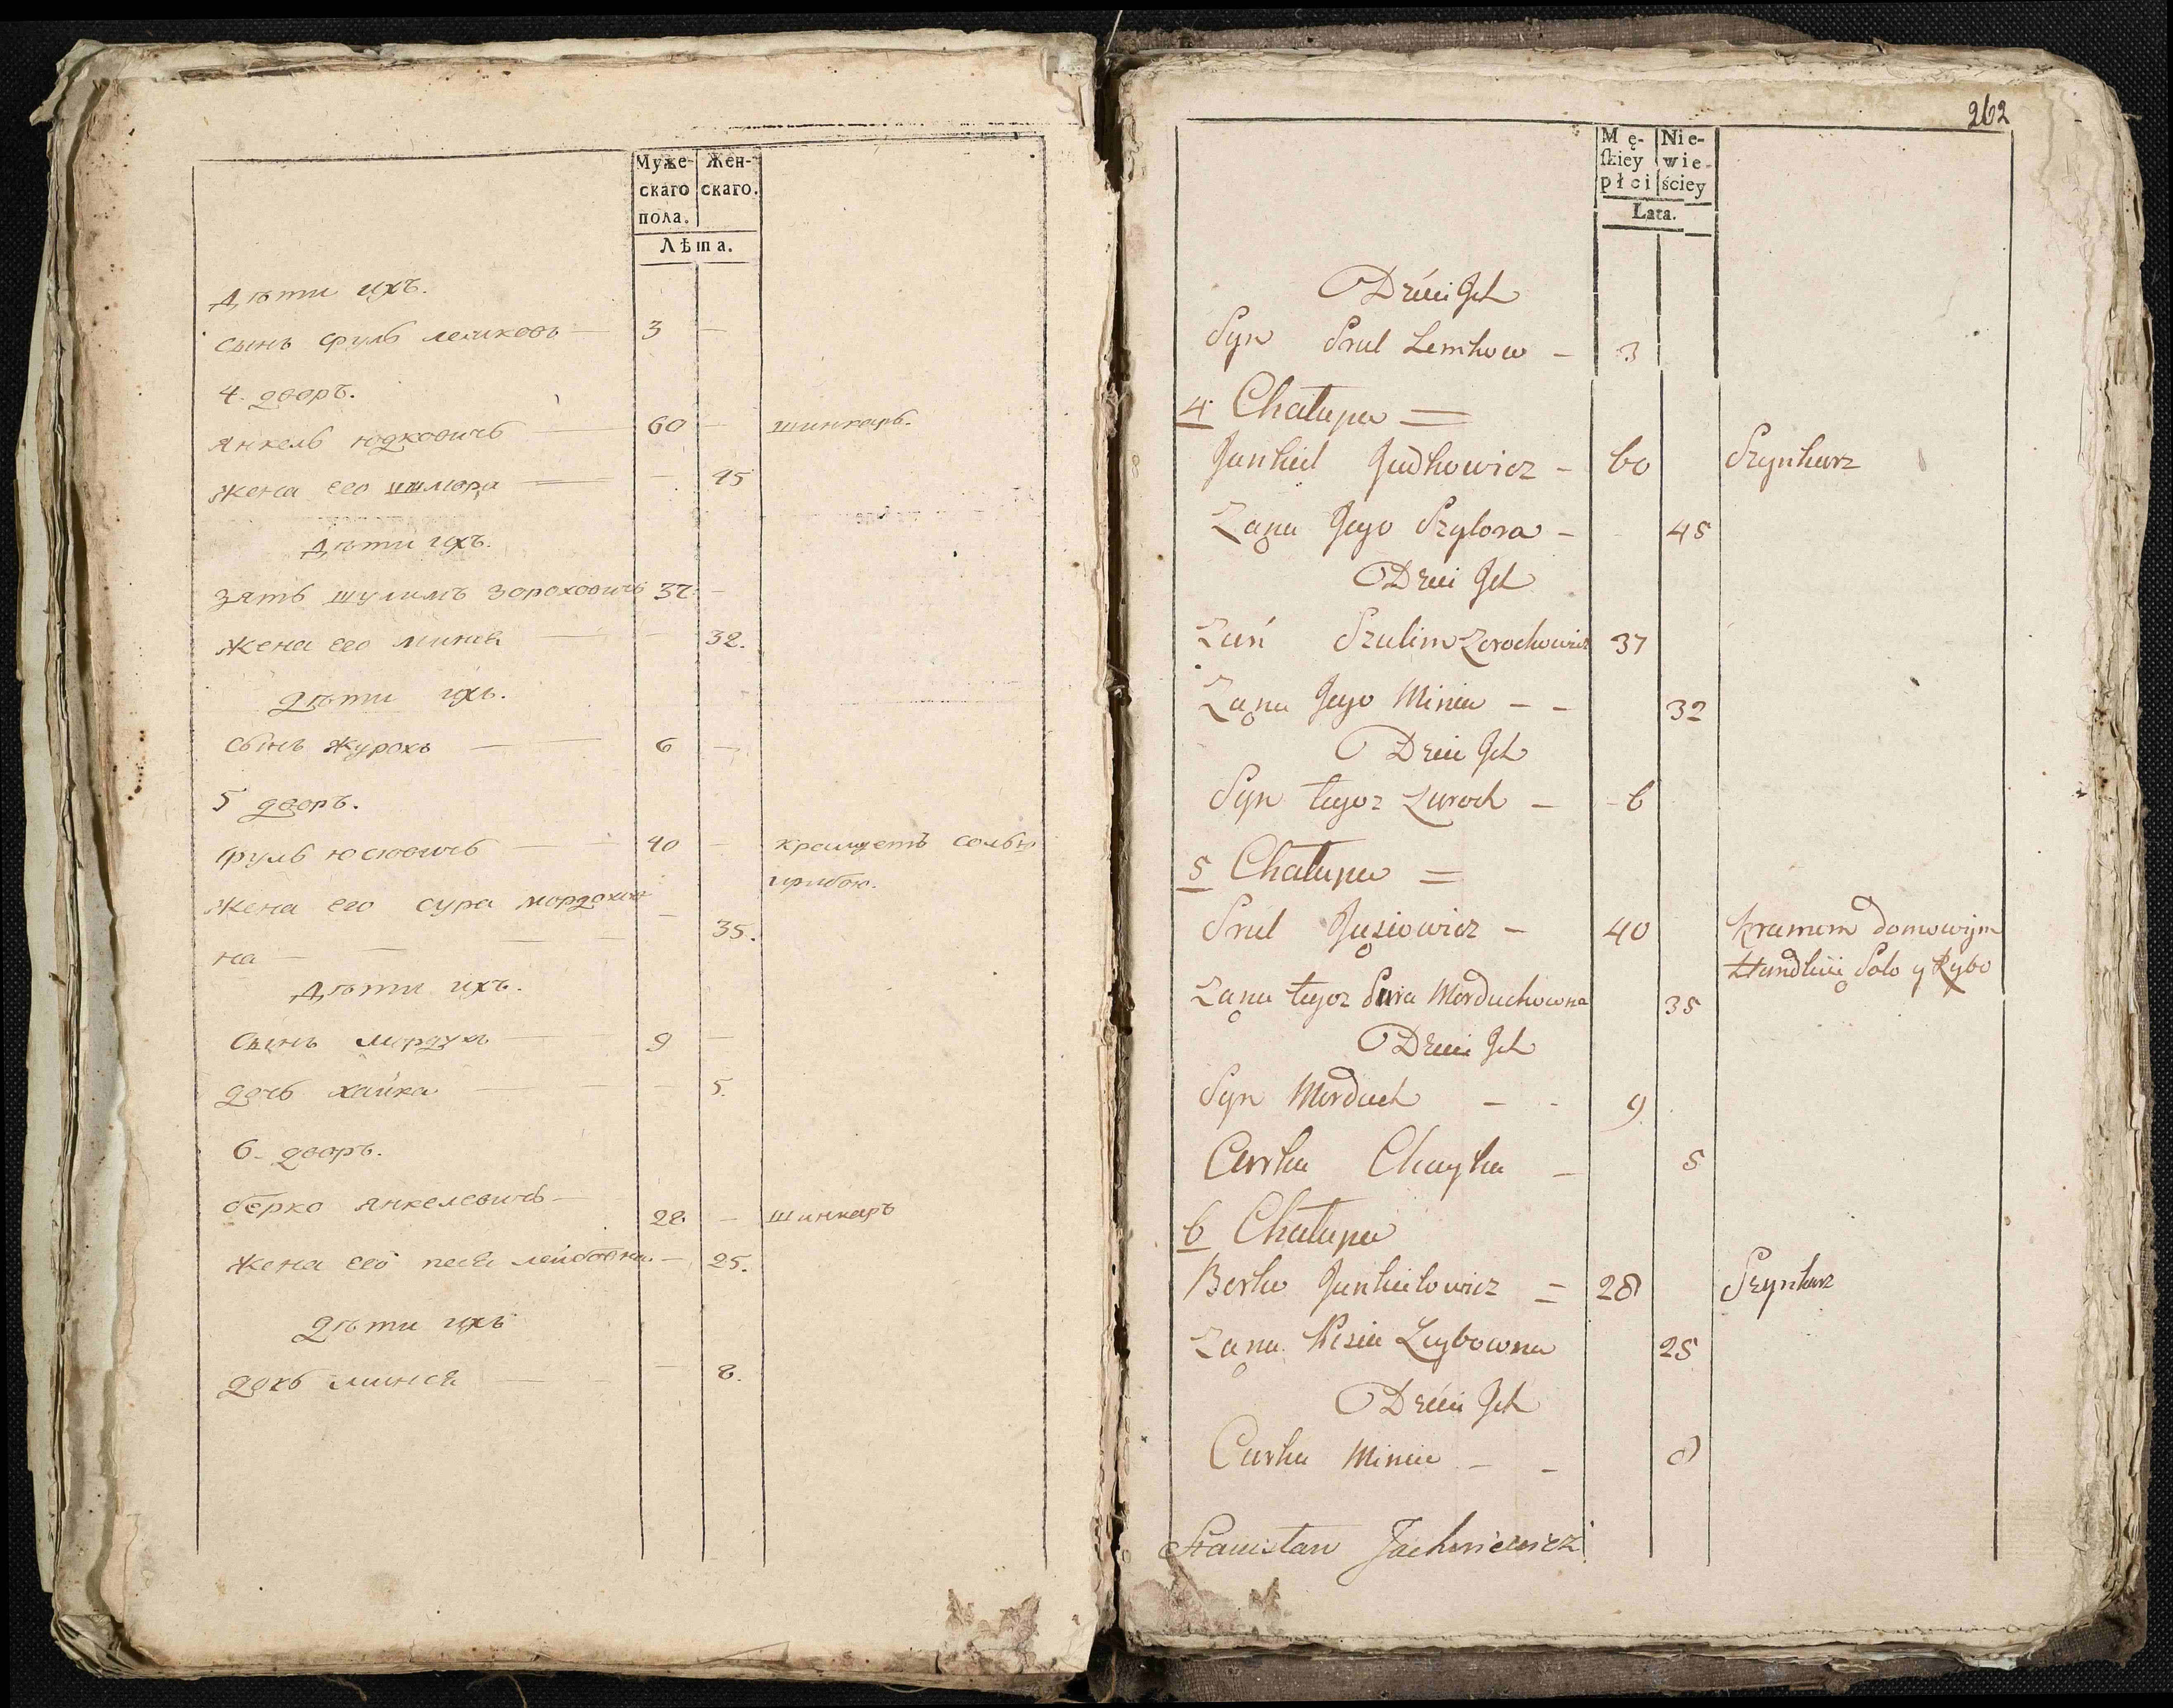 Муже-
скаго
пола.
Жен-
скаго.
Лѣта.
Дѣти ихъ.
сынъ сруль лемковъ — 3 —
4. дворъ.
Янкель юдковичъ — 60 — шинкарь.
жена его шилора — — 45
Дѣти ихъ.
зять шулимъ зороховичъ 37. —
жена его миня — — 32.
дѣти ихъ.
сынъ журохъ — — 6 —
5 дворъ.
сруль юсіовичъ — — 40 —
жена его сура мордохов
на — — — — 35.
Дѣти ихъ.
сынъ мордухъ — 9 —
дочь хайка — — — 5.
6. дворъ.
берко янкелевичъ — 28. — шинкарь
жена его песя лейбовна. — 25.
Дѣти ихъ
дочь минся — — — 8.
262
Mę-
skiey
płci
Nie-
wie-
ściey
Lata.
Dzieci Jch
Syn Srul Lemkow — 3
4 Chałupa =
Jankiel Judkowicz — 60 Szynkarz
Żona Jego Szylora — 45
Dzieci Jch
Zięć Szulim Zorochowicz 37
Żona Jego Minia — — 32
Dzieci Jch
Syn tegoż Zuroch — 6
5 Chałupa =
Srul Jusiowicz — 40 kramem domowym
Handluie Solo y Rybo
Żona tegoż Sura Morduchowna 35
Dzieci Jch
Syn Morduch — - 9
Curka Chayka — 5
6 Chałupa
Berko Jankielowicz = 28 Szynkarz
Żona Pesia Leybowna 25
Dzieci Jch
Curka Minia — — 8
Stanisław Jachimowicz